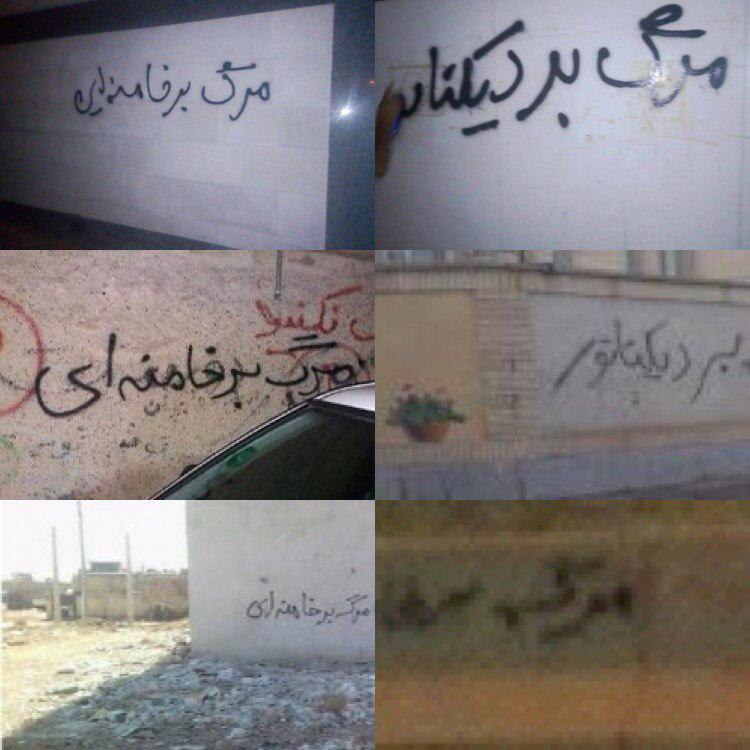 مرگ بر خامنه ای
مرگ بر دیکتا
مرگ بر خامنه ای
بر دیکتاتور
مرگ بر خامنه ای
مرگ بر